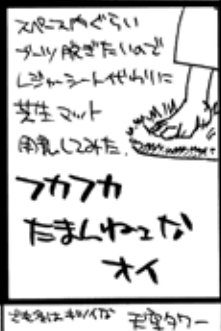 スペースやぐらい
ブーツ脱ぎたいので
レジャーシート代わりに
芝生マット
用意してみた。
フカフカ
たまんねェな
オイ
天空タワー